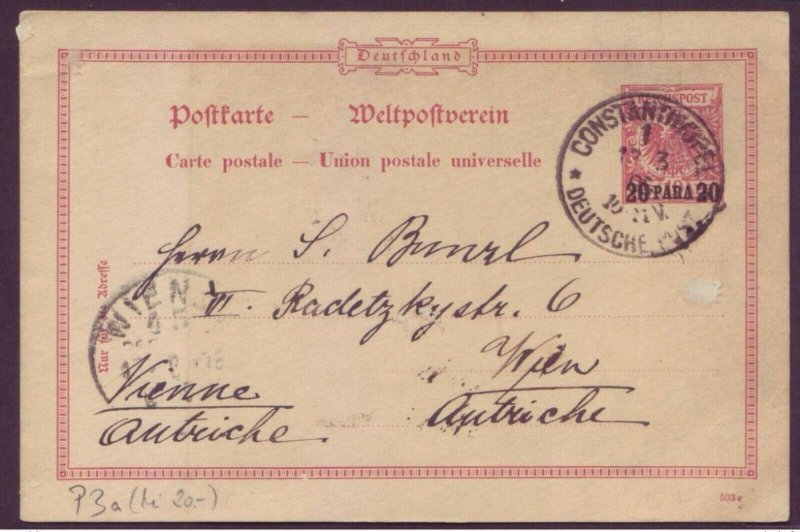 Deutschland
Postkarte — Weltpostverein
Carte postale — Union postale universelle
REICHSPOST
20 PARA 20
CONSTANTINOPEL
1
3
DEUTSCHE POST
Herrn S. Bunzl
III. Radetzkystr. 6
Wien
Autriche
Vienne
Autriche
Nur für die Adresse
WIEN
P3a (Mi 20.-)